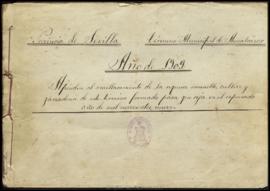 Provincia de Sevilla Término Municipal de
Año de 1909
Apéndice al amillaramiento de la riqueza inmueble, cultivo y
ganadería de este término formado para que rija en el expresado
año de mil novecientos nueve